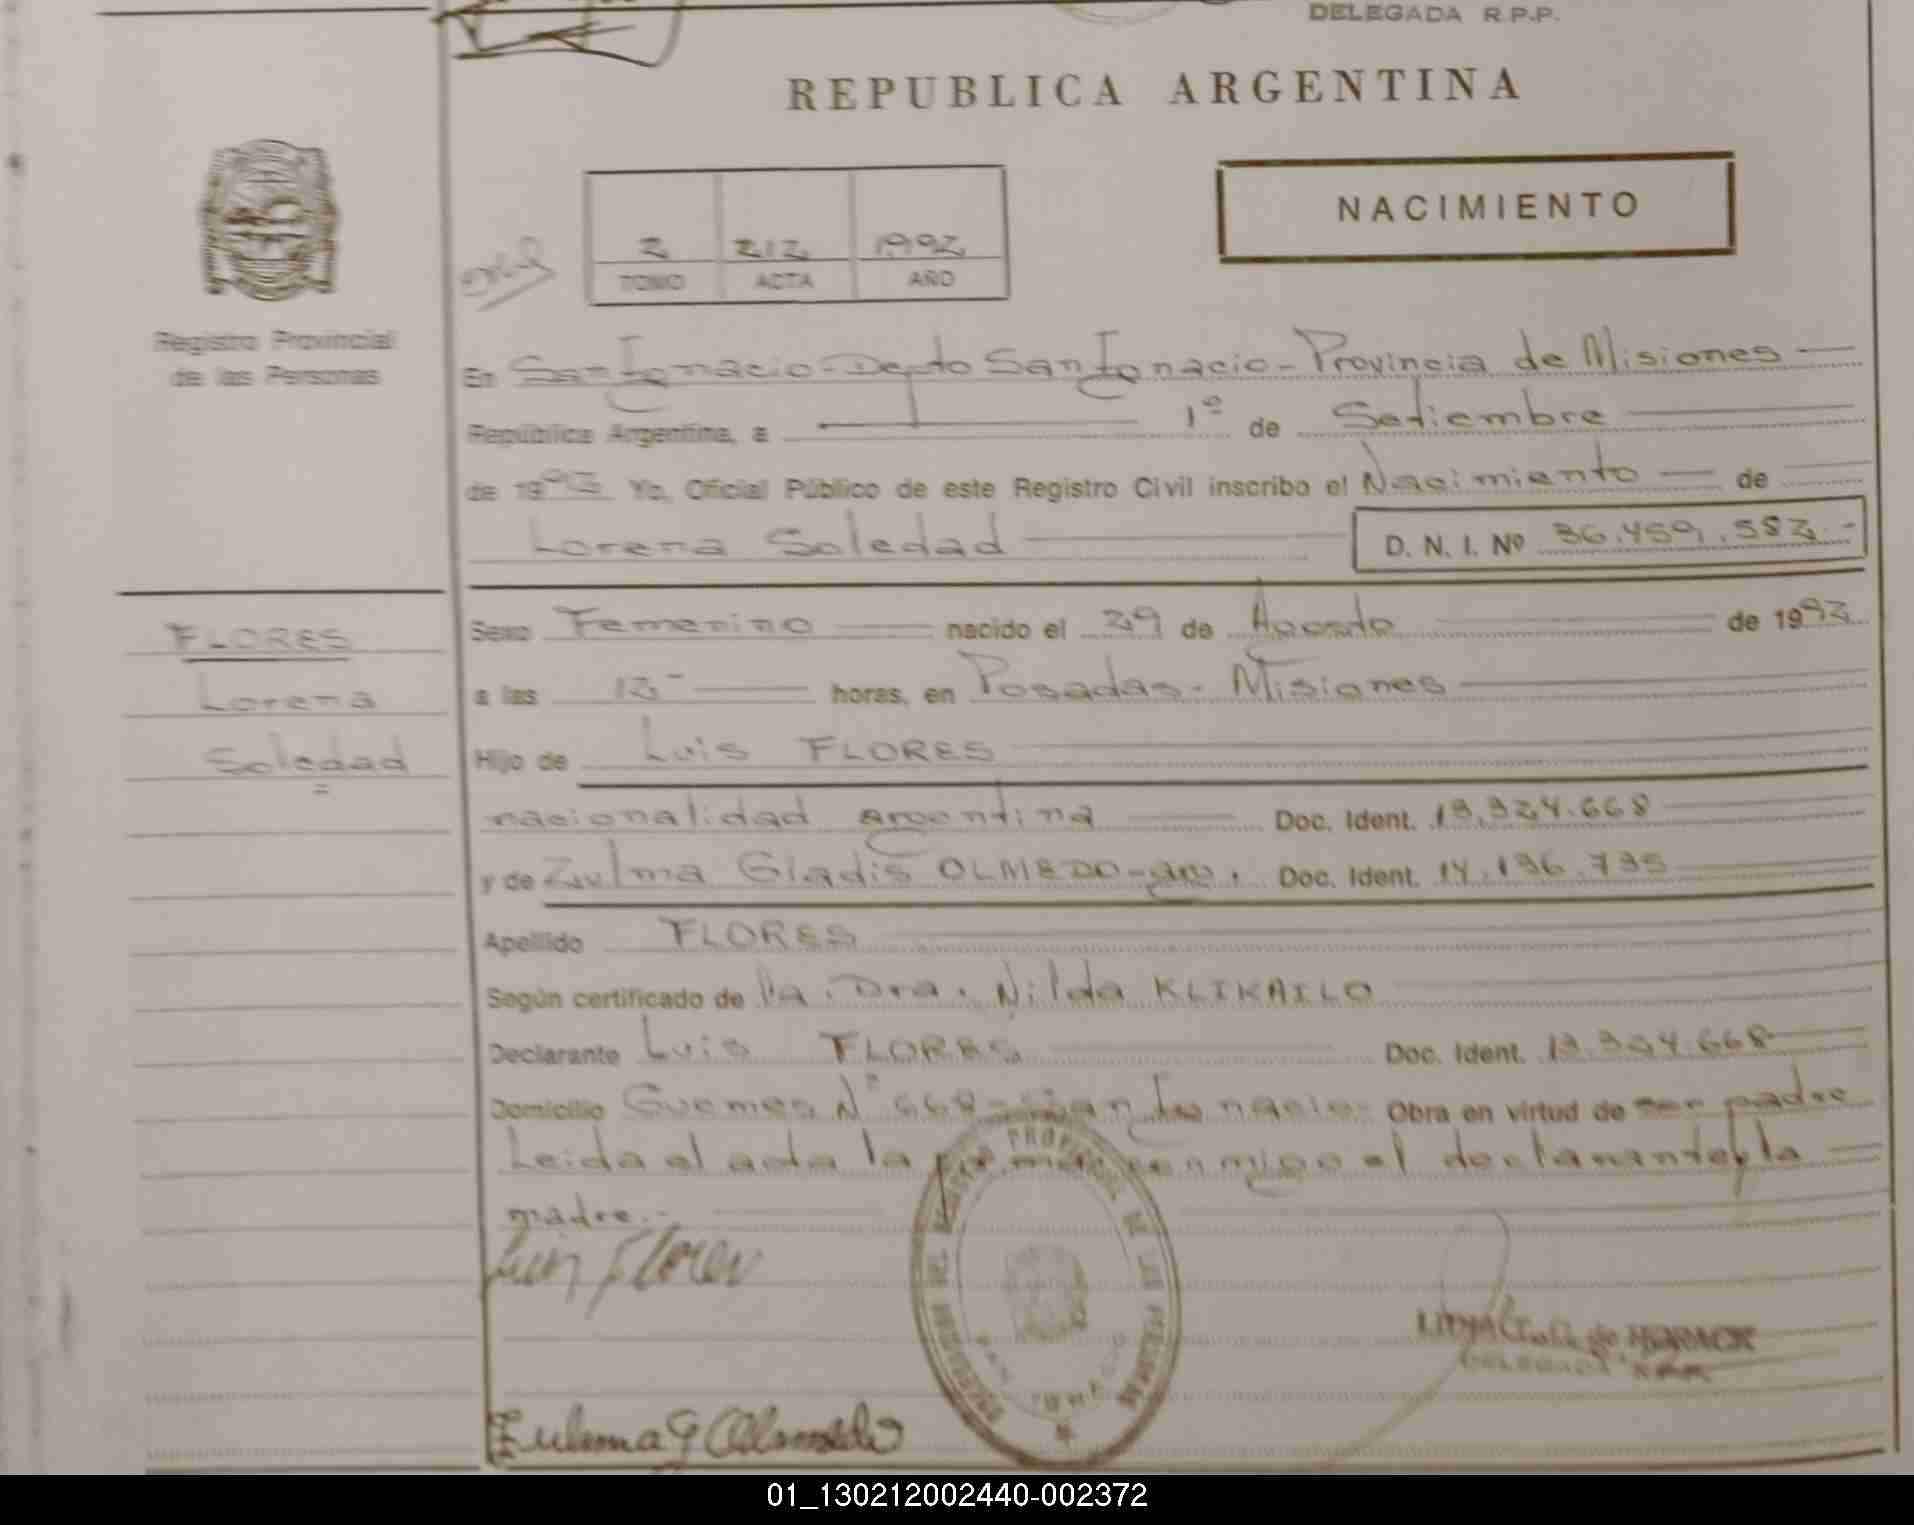 DELEGADA R.P.P.
REPUBLICA ARGENTINA
NACIMIENTO
2 212 1992
TOMO ACTA AÑO
Registro Provincial
de las Personas
En San Ignacio - Depto San Ignacio - Provincia de Misiones
República Argentina, a 1º de Setiembre
de 1992 Yo, Oficial Público de este Registro Civil inscribo el Nacimiento de
Lorena Soledad D. N. I. Nº 36.459.582.-
FLORES
Lorena
Soledad
Sexo Femenino nacido el 29 de Agosto de 1992
a las 12- horas, en Posadas - Misiones
Hijo de Luis FLORES
nacionalidad argentina Doc. Ident. 13.324.668
y de Zulma Gladis OLMEDO - arg. Doc. Ident. 14.136.735
Apellido FLORES
Según certificado de la Dra. Nilda KLIKAILO
Declarante Luis FLORES Doc. Ident. 13.324.668
Domicilio Guemes Nº 668 - San Ignacio - Obra en virtud de ser padre
Leida el acta la firman conmigo el declarante y la
madre.-
Luis Flores
REGISTRO PROVINCIAL DE LAS PERSONAS
SAN IGNACIO
de HORACK
DELEGADA R.P.P.
Zulma G Olmedo
01_130212002440-002372